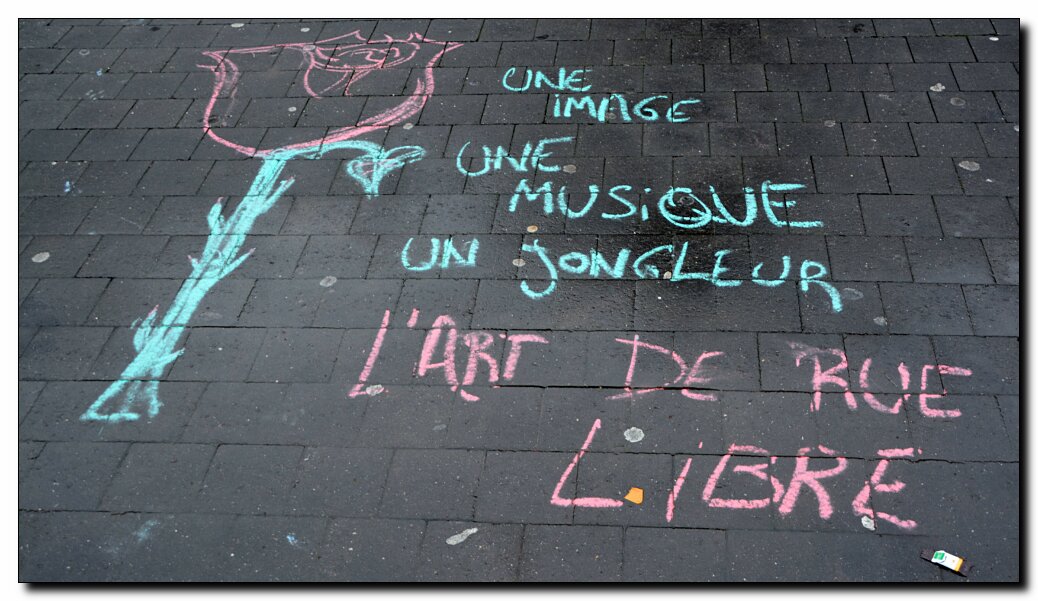 UNE
IMAGE
UNE
MUSiQUE
UN JONGLEUR
L'ART DE RUE
LIBRE